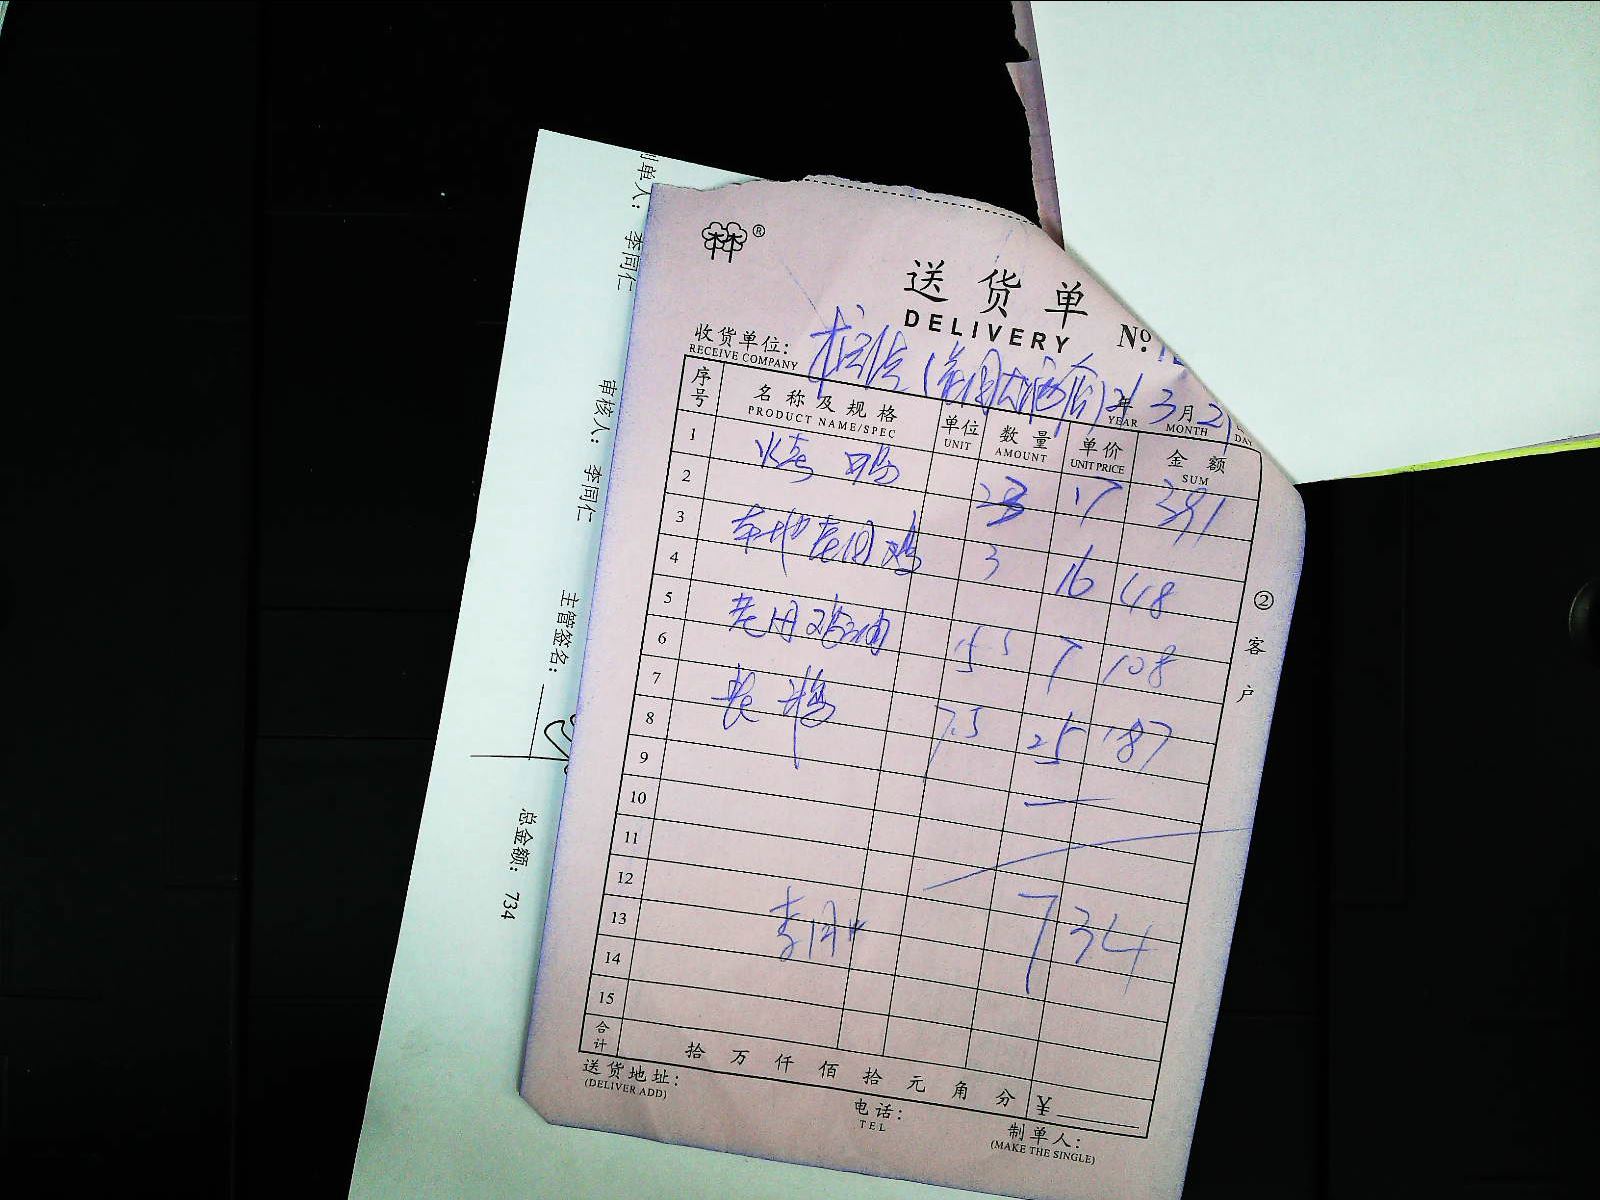 制单人： 李同仁
审核人： 李同仁
主管签名：
总金额： 734
®
送货单
DELIVERY
No:
收货单位：
RECEIVE COMPANY
21年 3月 2
YEAR MONTH DAY
序号 名称及规格 单位 数量 单价 金额
PRODUCT NAME/SPEC UNIT AMOUNT UNIT PRICE SUM
1 烧鸭 23 17 391
2
3 本地老母鸡 3 16 48
4
5 老母鸡油 15.5 7 108
6
7 7.5 25 187
8
9
10
11
12
13 734
14
15
合计 拾万仟佰拾元角分 ¥
送货地址：
(DELIVER ADD)
电话：
TEL
制单人：
(MAKE THE SINGLE)
②客户